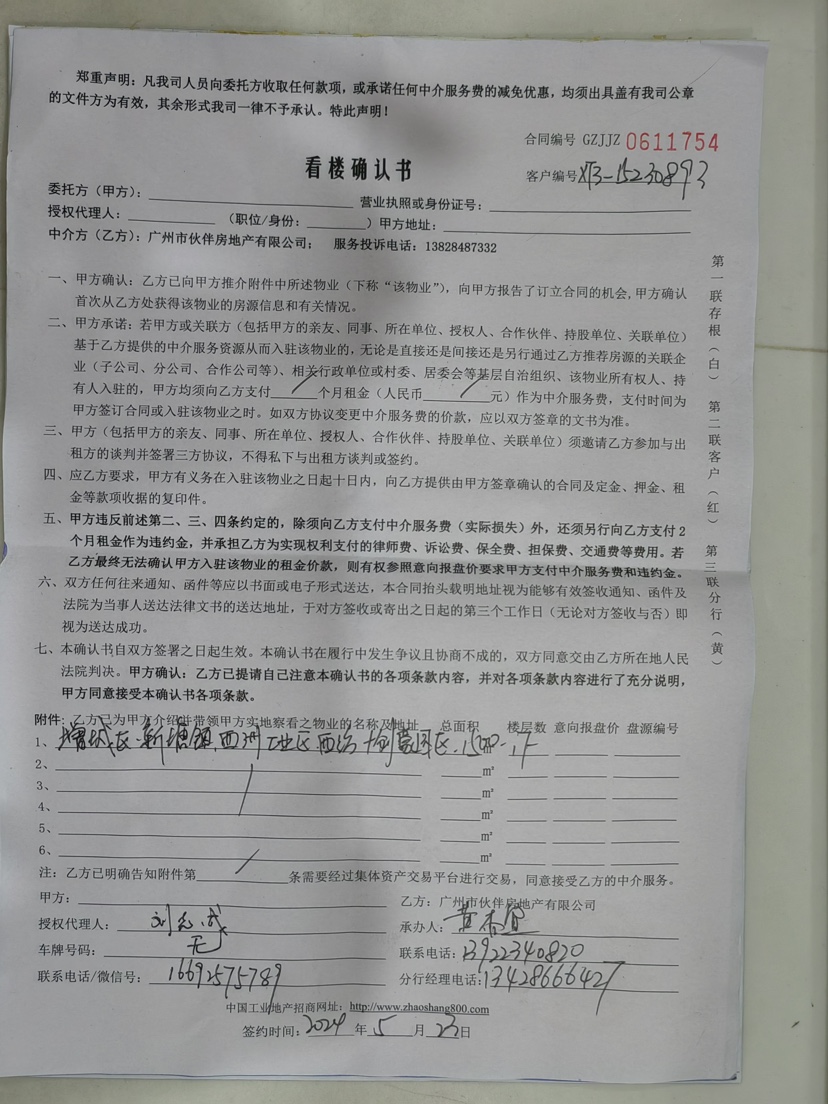 郑重声明：凡我司人员向委托方收取任何款项，或承诺任何中介服务费的减免优惠，均须出具盖有我司公章
的文件方为有效，其余形式我司一律不予承认。特此声明！
合同编号 GZJJZ 0611754
看楼确认书
客户编号 XB-15230893
委托方（甲方）：　营业执照或身份证号：
授权代理人：　（职位/身份：　）甲方地址：
中介方（乙方）：广州市伙伴房地产有限公司；　服务投诉电话：13828487332
一、甲方确认：乙方已向甲方推介附件中所述物业（下称“该物业”），向甲方报告了订立合同的机会，甲方确认
首次从乙方处获得该物业的房源信息和有关情况。
二、甲方承诺：若甲方或关联方（包括甲方的亲友、同事、所在单位、授权人、合作伙伴、持股单位、关联单位）
基于乙方提供的中介服务资源从而入驻该物业的，无论是直接还是间接还是另行通过乙方推荐房源的关联企
业（子公司、分公司、合作公司等）、相关行政单位或村委、居委会等基层自治组织、该物业所有权人、持
有人入驻的，甲方均须向乙方支付 / 个月租金（人民币 / 元）作为中介服务费，支付时间为
甲方签订合同或入驻该物业之时。如双方协议变更中介服务费的价款，应以双方签章的文书为准。
三、甲方（包括甲方的亲友、同事、所在单位、授权人、合作伙伴、持股单位、关联单位）须邀请乙方参加与出
租方的谈判并签署三方协议，不得私下与出租方谈判或签约。
四、应乙方要求，甲方有义务在入驻该物业之日起十日内，向乙方提供由甲方签章确认的合同及定金、押金、租
金等款项收据的复印件。
五、甲方违反前述第二、三、四条约定的，除须向乙方支付中介服务费（实际损失）外，还须另行向乙方支付2
个月租金作为违约金，并承担乙方为实现权利支付的律师费、诉讼费、保全费、担保费、交通费等费用。若
乙方最终无法确认甲方入驻该物业的租金价款，则有权参照意向报盘价要求甲方支付中介服务费和违约金。
六、双方任何往来通知、函件等应以书面或电子形式送达，本合同抬头载明地址视为能够有效签收通知、函件及
法院为当事人送达法律文书的送达地址，于对方签收或寄出之日起的第三个工作日（无论对方签收与否）即
视为送达成功。
七、本确认书自双方签署之日起生效。本确认书在履行中发生争议且协商不成的，双方同意交由乙方所在地人民
法院判决。甲方确认：乙方已提请自己注意本确认书的各项条款内容，并对各项条款内容进行了充分说明，
甲方同意接受本确认书各项条款。
第一联存根（白）　第二联客户（红）　第三联分行（黄）
附件：乙方已为甲方介绍并带领甲方实地察看之物业的名称及地址　总面积　楼层数　意向报盘价　盘源编号
1、增城区·新塘镇西洲工业区西治创薈园区
2、　m²
3、　m²
4、　m²
5、　m²
6、　m²
注：乙方已明确告知附件第 / 条需要经过集体资产交易平台进行交易，同意接受乙方的中介服务。
甲方：　乙方：广州市伙伴房地产有限公司
授权代理人：刘　承办人：黄
车牌号码：无　联系电话：13922340820
联系电话/微信号：16692575789　分行经理电话：13428666427
中国工业地产招商网址：http://www.zhaoshang800.com
签约时间：2024年5月23日